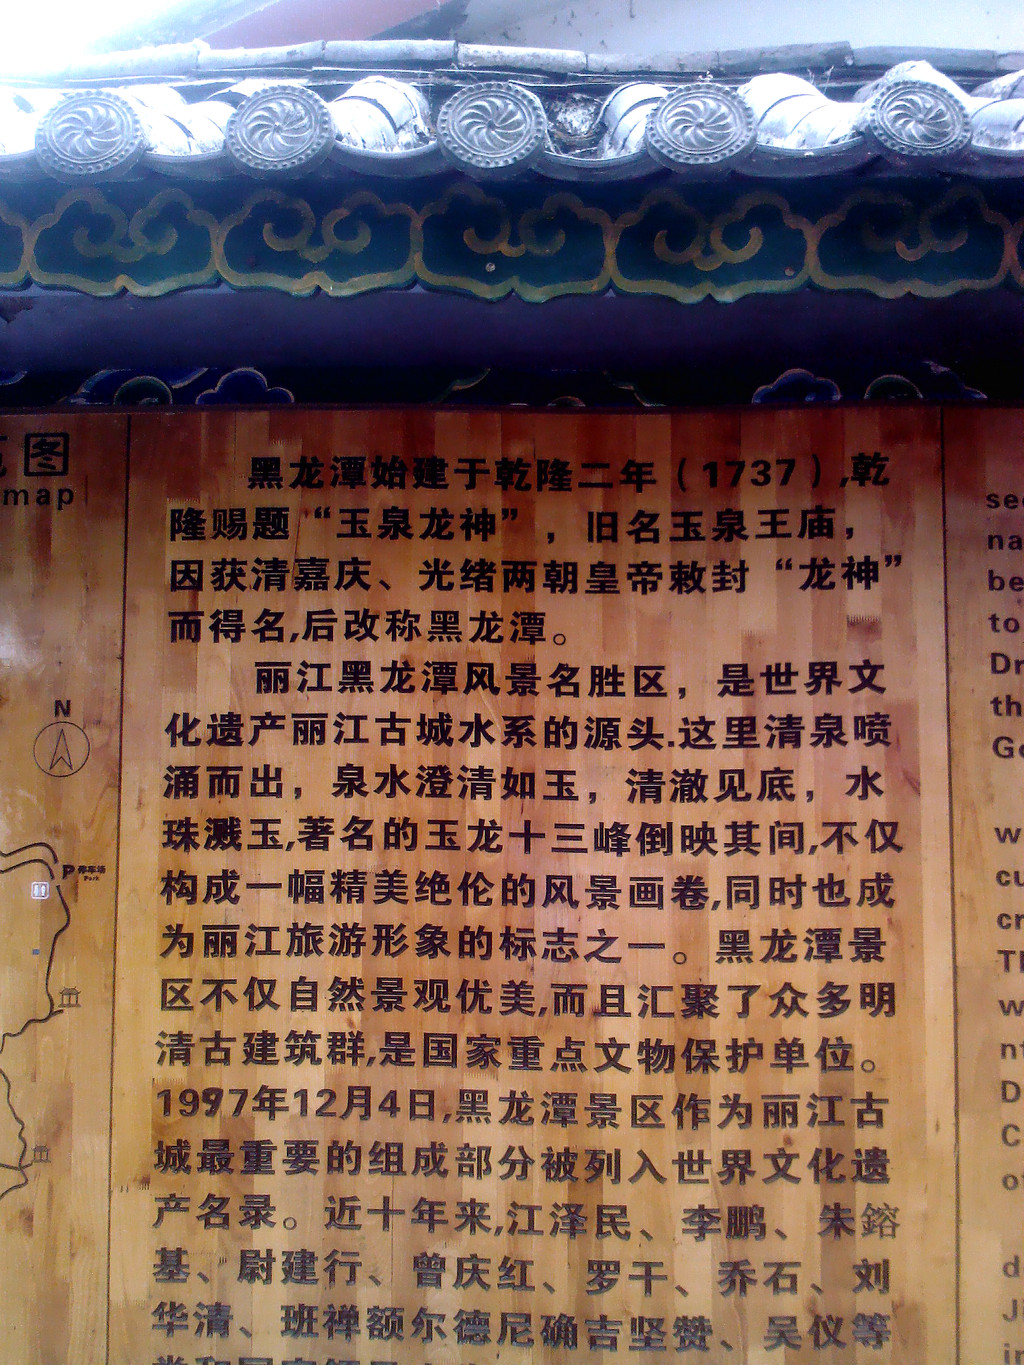 图
map
N
P 停车场
Park
黑龙潭始建于乾隆二年（1737）,乾
隆赐题“玉泉龙神”，旧名玉泉王庙，
因获清嘉庆、光绪两朝皇帝敕封“龙神”
而得名,后改称黑龙潭。
丽江黑龙潭风景名胜区，是世界文
化遗产丽江古城水系的源头.这里清泉喷
涌而出，泉水澄清如玉，清澈见底，水
珠溅玉,著名的玉龙十三峰倒映其间,不仅
构成一幅精美绝伦的风景画卷,同时也成
为丽江旅游形象的标志之一。黑龙潭景
区不仅自然景观优美,而且汇聚了众多明
清古建筑群,是国家重点文物保护单位。
1997年12月4日,黑龙潭景区作为丽江古
城最重要的组成部分被列入世界文化遗
产名录。近十年来,江泽民、李鹏、朱鎔
基、尉建行、曾庆红、罗干、乔石、刘
华清、班禅额尔德尼确吉坚赞、吴仪等
to